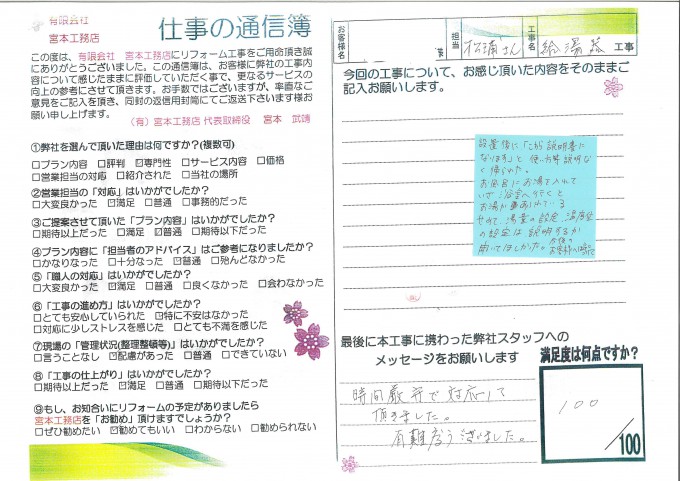 有限会社
宮本工務店
仕事の通信簿
この度は、有限会社 宮本工務店にリフォーム工事をご用命頂き誠
にありがとうございました。この通信簿は、お客様に弊社の工事内
容について感じたままに評価していただく事で、更なるサービスの
向上の参考にさせて頂きます。お手数ではございますが、率直なご
意見をご記入を頂き、同封の返信用封筒にてご返送下さいます様お
願い申し上げます。
(有)宮本工務店 代表取締役 宮本 武靖
①弊社を選んで頂いた理由は何ですか?(複数可)
□プラン内容 □評判 ☑専門性 □サービス内容 □価格
□営業担当の対応 □紹介された □当社の場所
②営業担当の「対応」はいかがでしたか?
□大変良かった ☑満足 □普通 □事務的だった
③ご提案させて頂いた「プラン内容」はいかがでしたか?
□期待以上だった □満足 ☑普通 □期待以下だった
④プラン内容に「担当者のアドバイス」はご参考になりましたか?
□かなりなった □十分なった ☑普通 □殆んどなかった
⑤「職人の対応」はいかがでしたか?
□大変良かった ☑満足 □普通 □良くなかった □会わなかった
⑥「工事の進め方」はいかがでしたか?
□とても安心していられた ☑特に不安はなかった
□対応に少しストレスを感じた □とても不満を感じた
⑦現場の「管理状況(整理整頓等)」はいかがでしたか?
□言うことなし ☑配慮があった □普通 □できていない
⑧「工事の仕上がり」はいかがでしたか?
□期待以上だった ☑満足 □普通 □期待以下だった
⑨もし、お知合いにリフォームの予定がありましたら
宮本工務店を「お勧め」頂けますでしょうか?
□ぜひ勧めたい ☑勧めてもいい □わからない □勧められない
お客様名
担当
松浦さん
工事名
給湯器 工事
今回の工事について、お感じ頂いた内容をそのままご
記入お願いします。
設置後に「こちら説明書に
なります」と使い方等説明なく
帰られた。
お風呂にお湯を入れて
いざ浴室へ行くと
お湯が
せめて、湯量の設定、温度
の設定は説明するか
聞いてほしかった。今後の
最後に本工事に携わった弊社スタッフへの
メッセージをお願いします
時間厳守で対応して
頂きました。
有難う ございました。
満足度は何点ですか?
100
/100